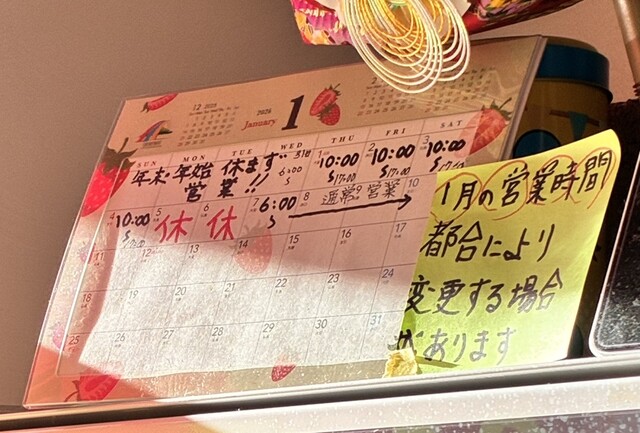 12 2025
2026
January 1
2
SUN MON TUE WED THU FRI SAT
年末・年始 休まず 31日 1 10:00 2 10:00 3 10:00
営業!! 6:00 〜17:00 〜17:00 〜17:00
〜
4 10:00 5 休 6 休 7 6:00 8 通常 9 営業 10
〜17:00 〜
11 12 13 14 15 16 17
18 19 20 21 22 23 24
25 26 27 28 29 30 31
1月の営業時間
都合により
変更する場合
があります